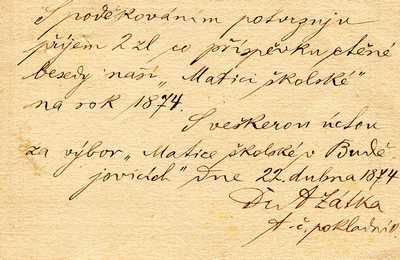 S poděkováním potvrzuju
příjem 2 zl co příspěvku ctěné
besedy naší „Matici školské“
na rok 1874.
S veškerou úctou
za výbor „Matice školské v Budě-
jovicích“ dne 22. dubna 1874
Dr A Zátka
t. č. pokladní